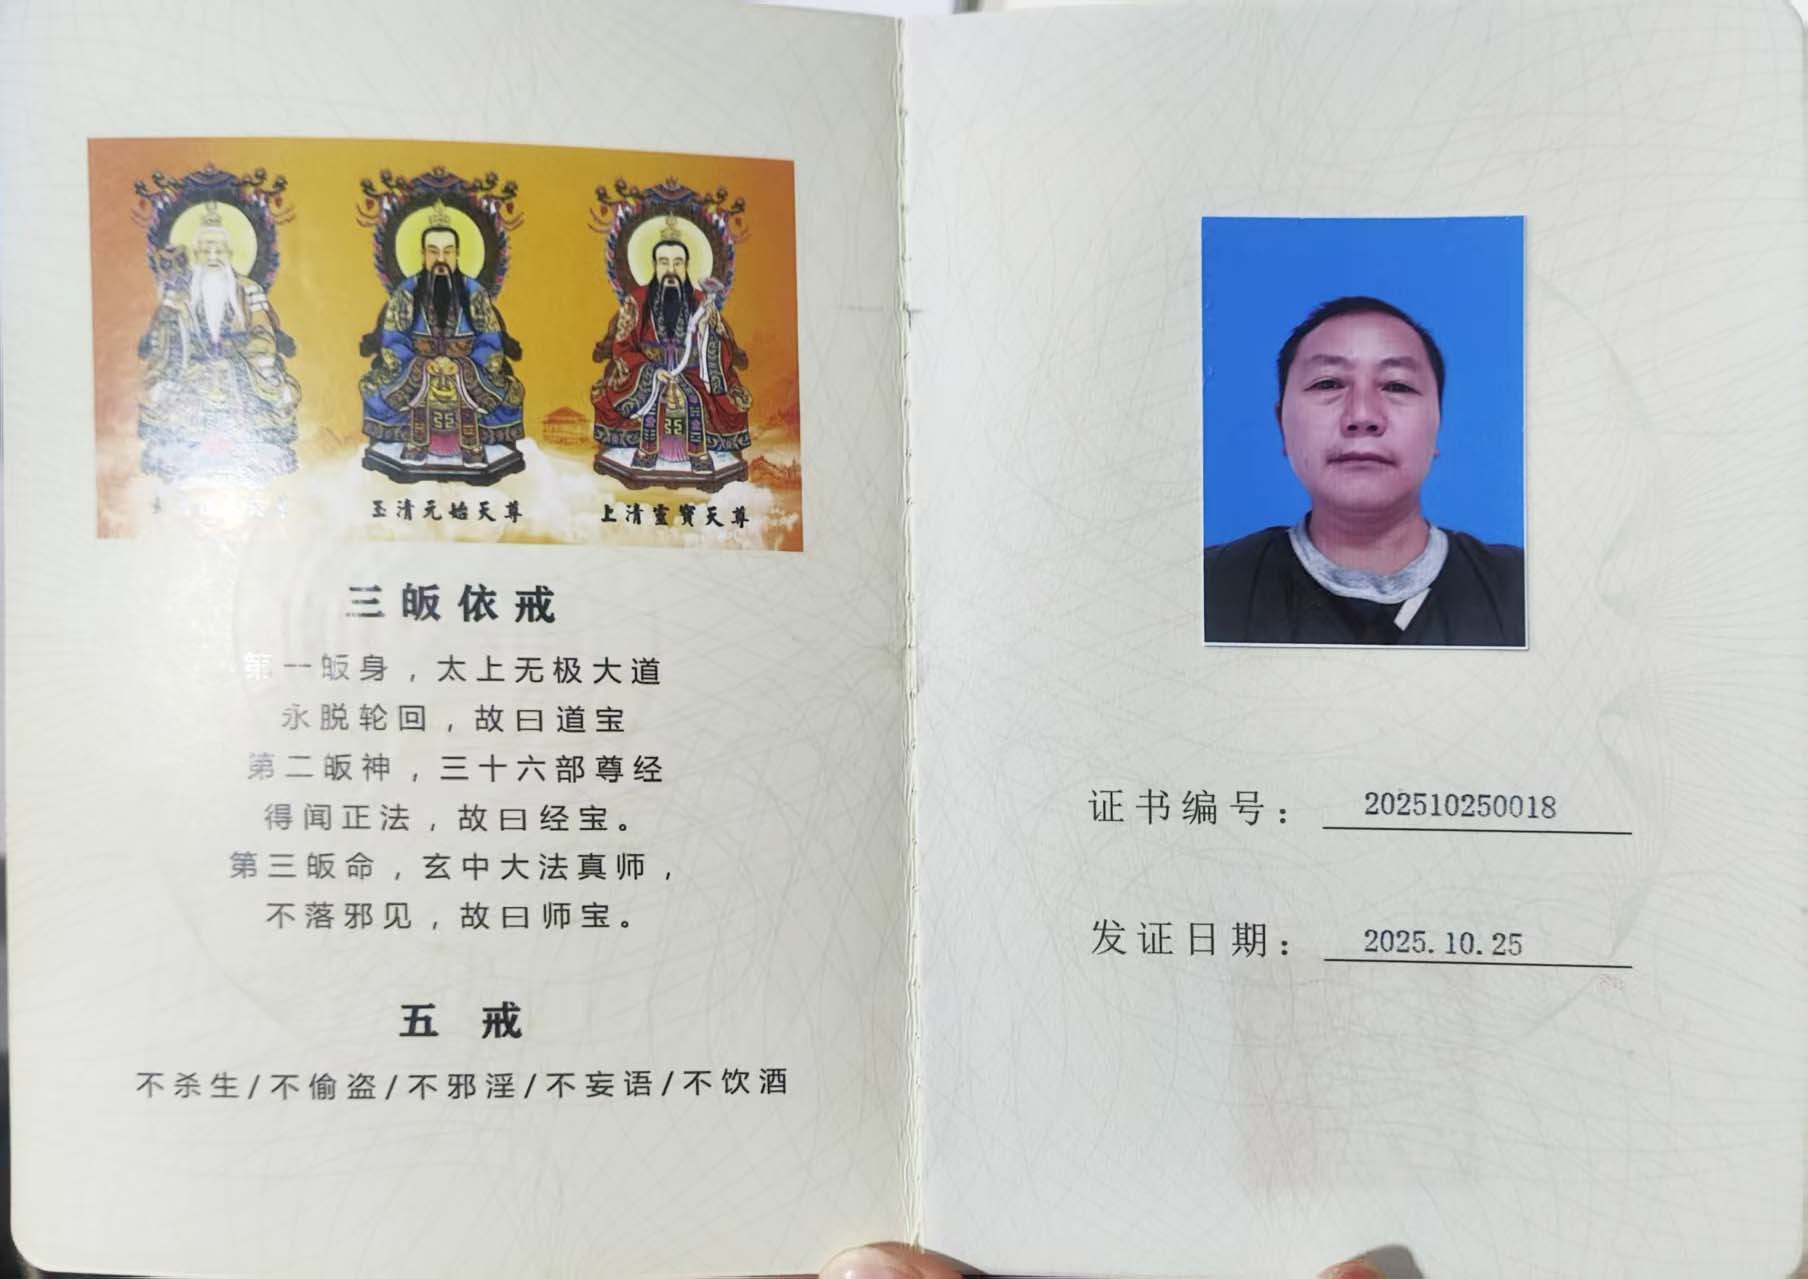 玉清元始天尊
上清靈寶天尊
三皈依戒
第一皈身，太上无极大道
永脱轮回，故曰道宝
第二皈神，三十六部尊经
得闻正法，故曰经宝。
第三皈命，玄中大法真师，
不落邪见，故曰师宝。
五 戒
不杀生/不偷盗/不邪淫/不妄语/不饮酒
证书编号：202510250018
发证日期：2025.10.25